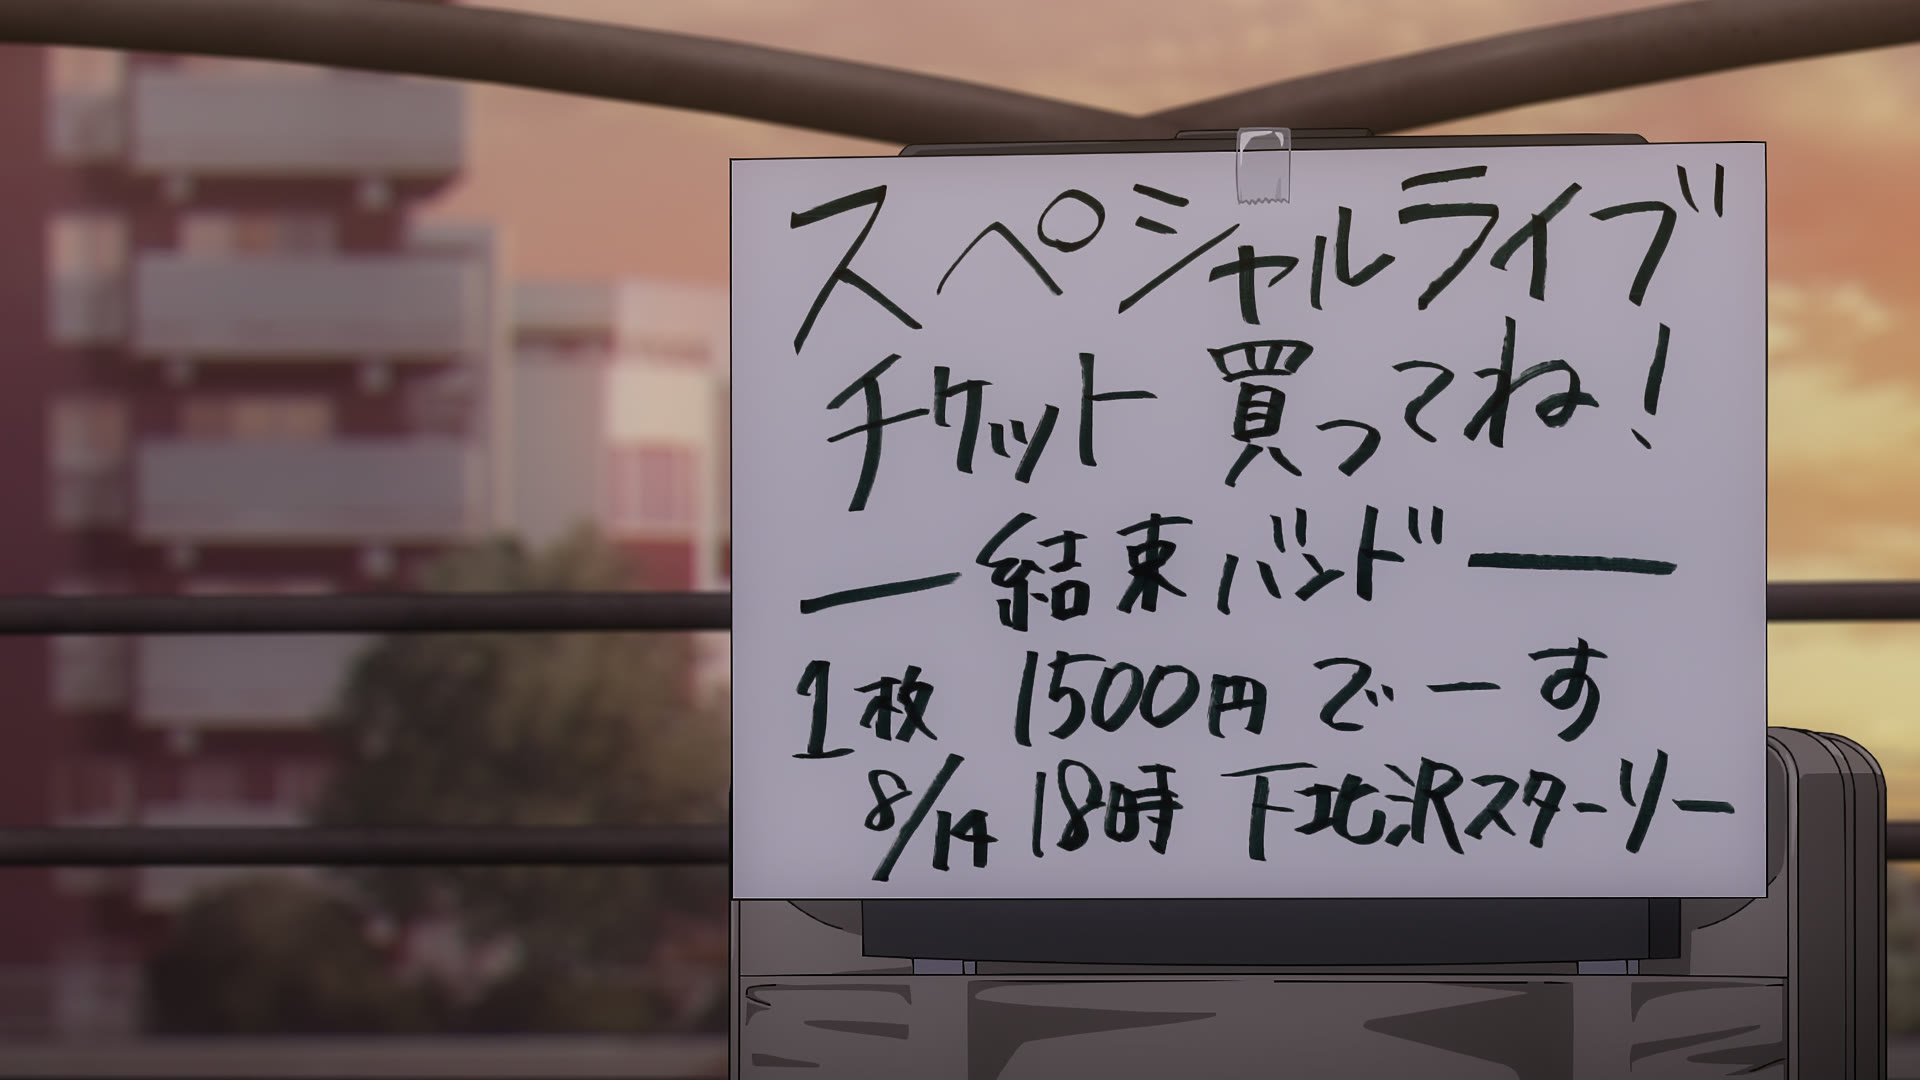 スペシャルライブ
チケット買ってね!
―結束バンド―
1枚 1500円 でーす
8/14 18時 下北沢スターリー